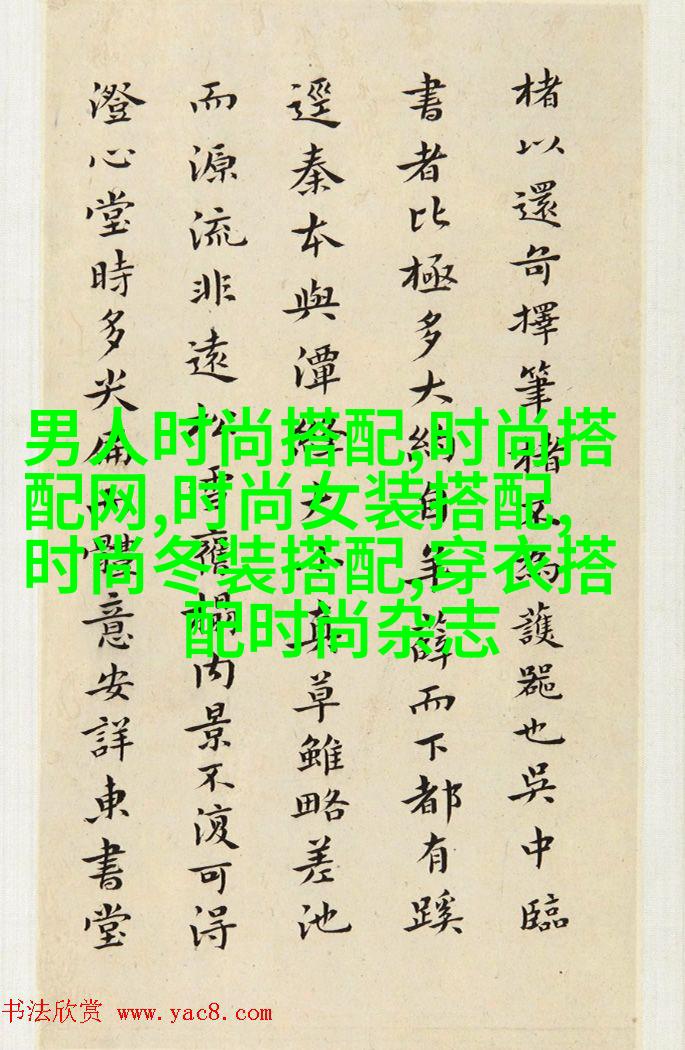 楮以還奇擇筆楮不為護噐也吳中臨
書者比極多大約自羊薛而下都有蹊
逕秦本與潭絳真草雖略差池
而源流非遠松雪內景不復可得
澄心堂時多尖體意安詳東書堂
男人时尚搭配,时尚搭
配网,时尚女装搭配,
时尚冬装搭配,穿衣搭
配时尚杂志
书法欣赏 www.yac8.com